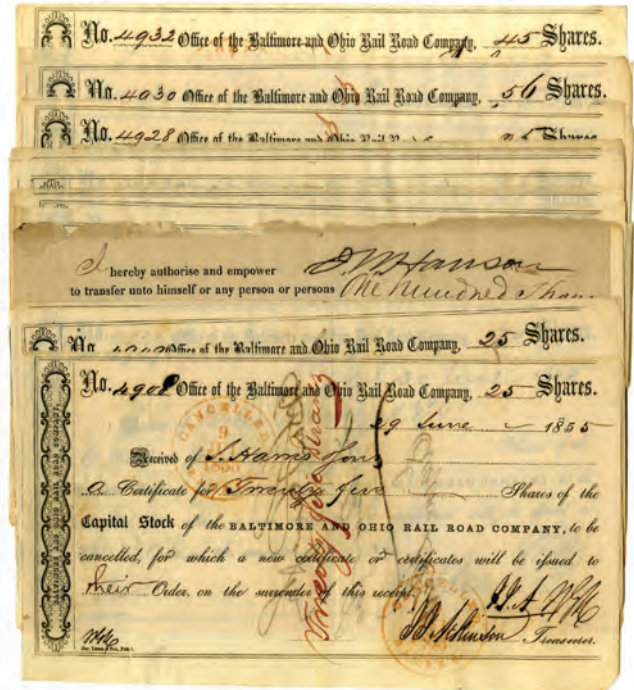 No. 4932 Office of the Baltimore and Ohio Rail Road Company, 45 Shares.
No. 4930 Office of the Baltimore and Ohio Rail Road Company, 56 Shares.
No. 4928 Office of the Baltimore and Ohio
I hereby authorise and empower
to transfer unto himself or any person or persons One hundred
No. Office of the Baltimore and Ohio Rail Road Company, 25 Shares.
No. 4908 Office of the Baltimore and Ohio Rail Road Company, 25 Shares.
29 June 1855
Received of S. Harris Sons
a Certificate for Twenty five Shares of the
Capital Stock of the BALTIMORE AND OHIO RAIL ROAD COMPANY, to be
cancelled, for which a new certificate or certificates will be issued to
their Order, on the surrender of this receipt.
Treasurer.
CANCELLED
9
Twenty five Shares